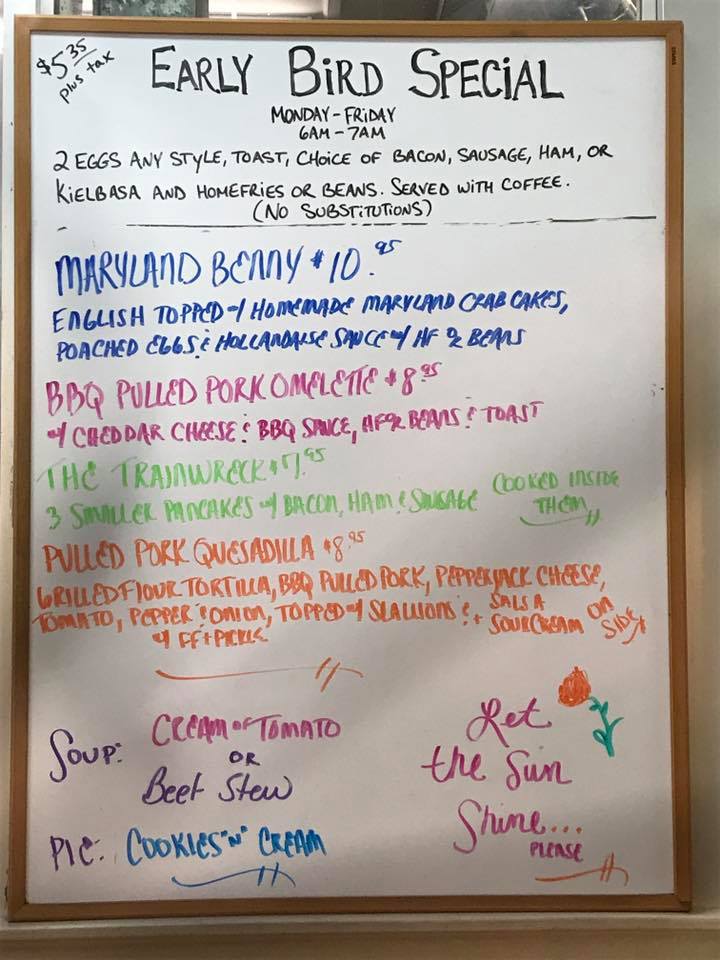 $5.35
plus tax
EARLY BIRD SPECIAL
MONDAY-FRIDAY
6AM-7AM
2 EGGS ANY STYLE, TOAST, CHOICE OF BACON, SAUSAGE, HAM, OR
KIELBASA AND HOMEFRIES OR BEANS. SERVED WITH COFFEE.
(NO SUBSTITUTIONS)
MARYLAND BENNY $10.95
ENGLISH TOPPED w/ HOMEMADE MARYLAND CRAB CAKES,
POACHED EGGS & HOLLANDAISE SAUCE w/ HF OR BEANS
BBQ PULLED PORK OMELETTE $8.95
w/ CHEDDAR CHEESE & BBQ SAUCE, HF OR BEANS & TOAST
THE TRAINWRECK $7.95
3 SMALLER PANCAKES w/ BACON, HAM & SAUSAGE COOKED INSIDE
THEM
PULLED PORK QUESADILLA $8.95
GRILLED FLOUR TORTILLA, BBQ PULLED PORK, PEPPERJACK CHEESE,
TOMATO, PEPPER & ONION, TOPPED w/ SCALLIONS & + SALSA
SOUR CREAM ON SIDE
w/ FF + PICKLE
SOUP: CREAM OF TOMATO
OR
Beef Stew
PIE: COOKIES "N" CREAM
Let
the Sun
Shine...
PLEASE